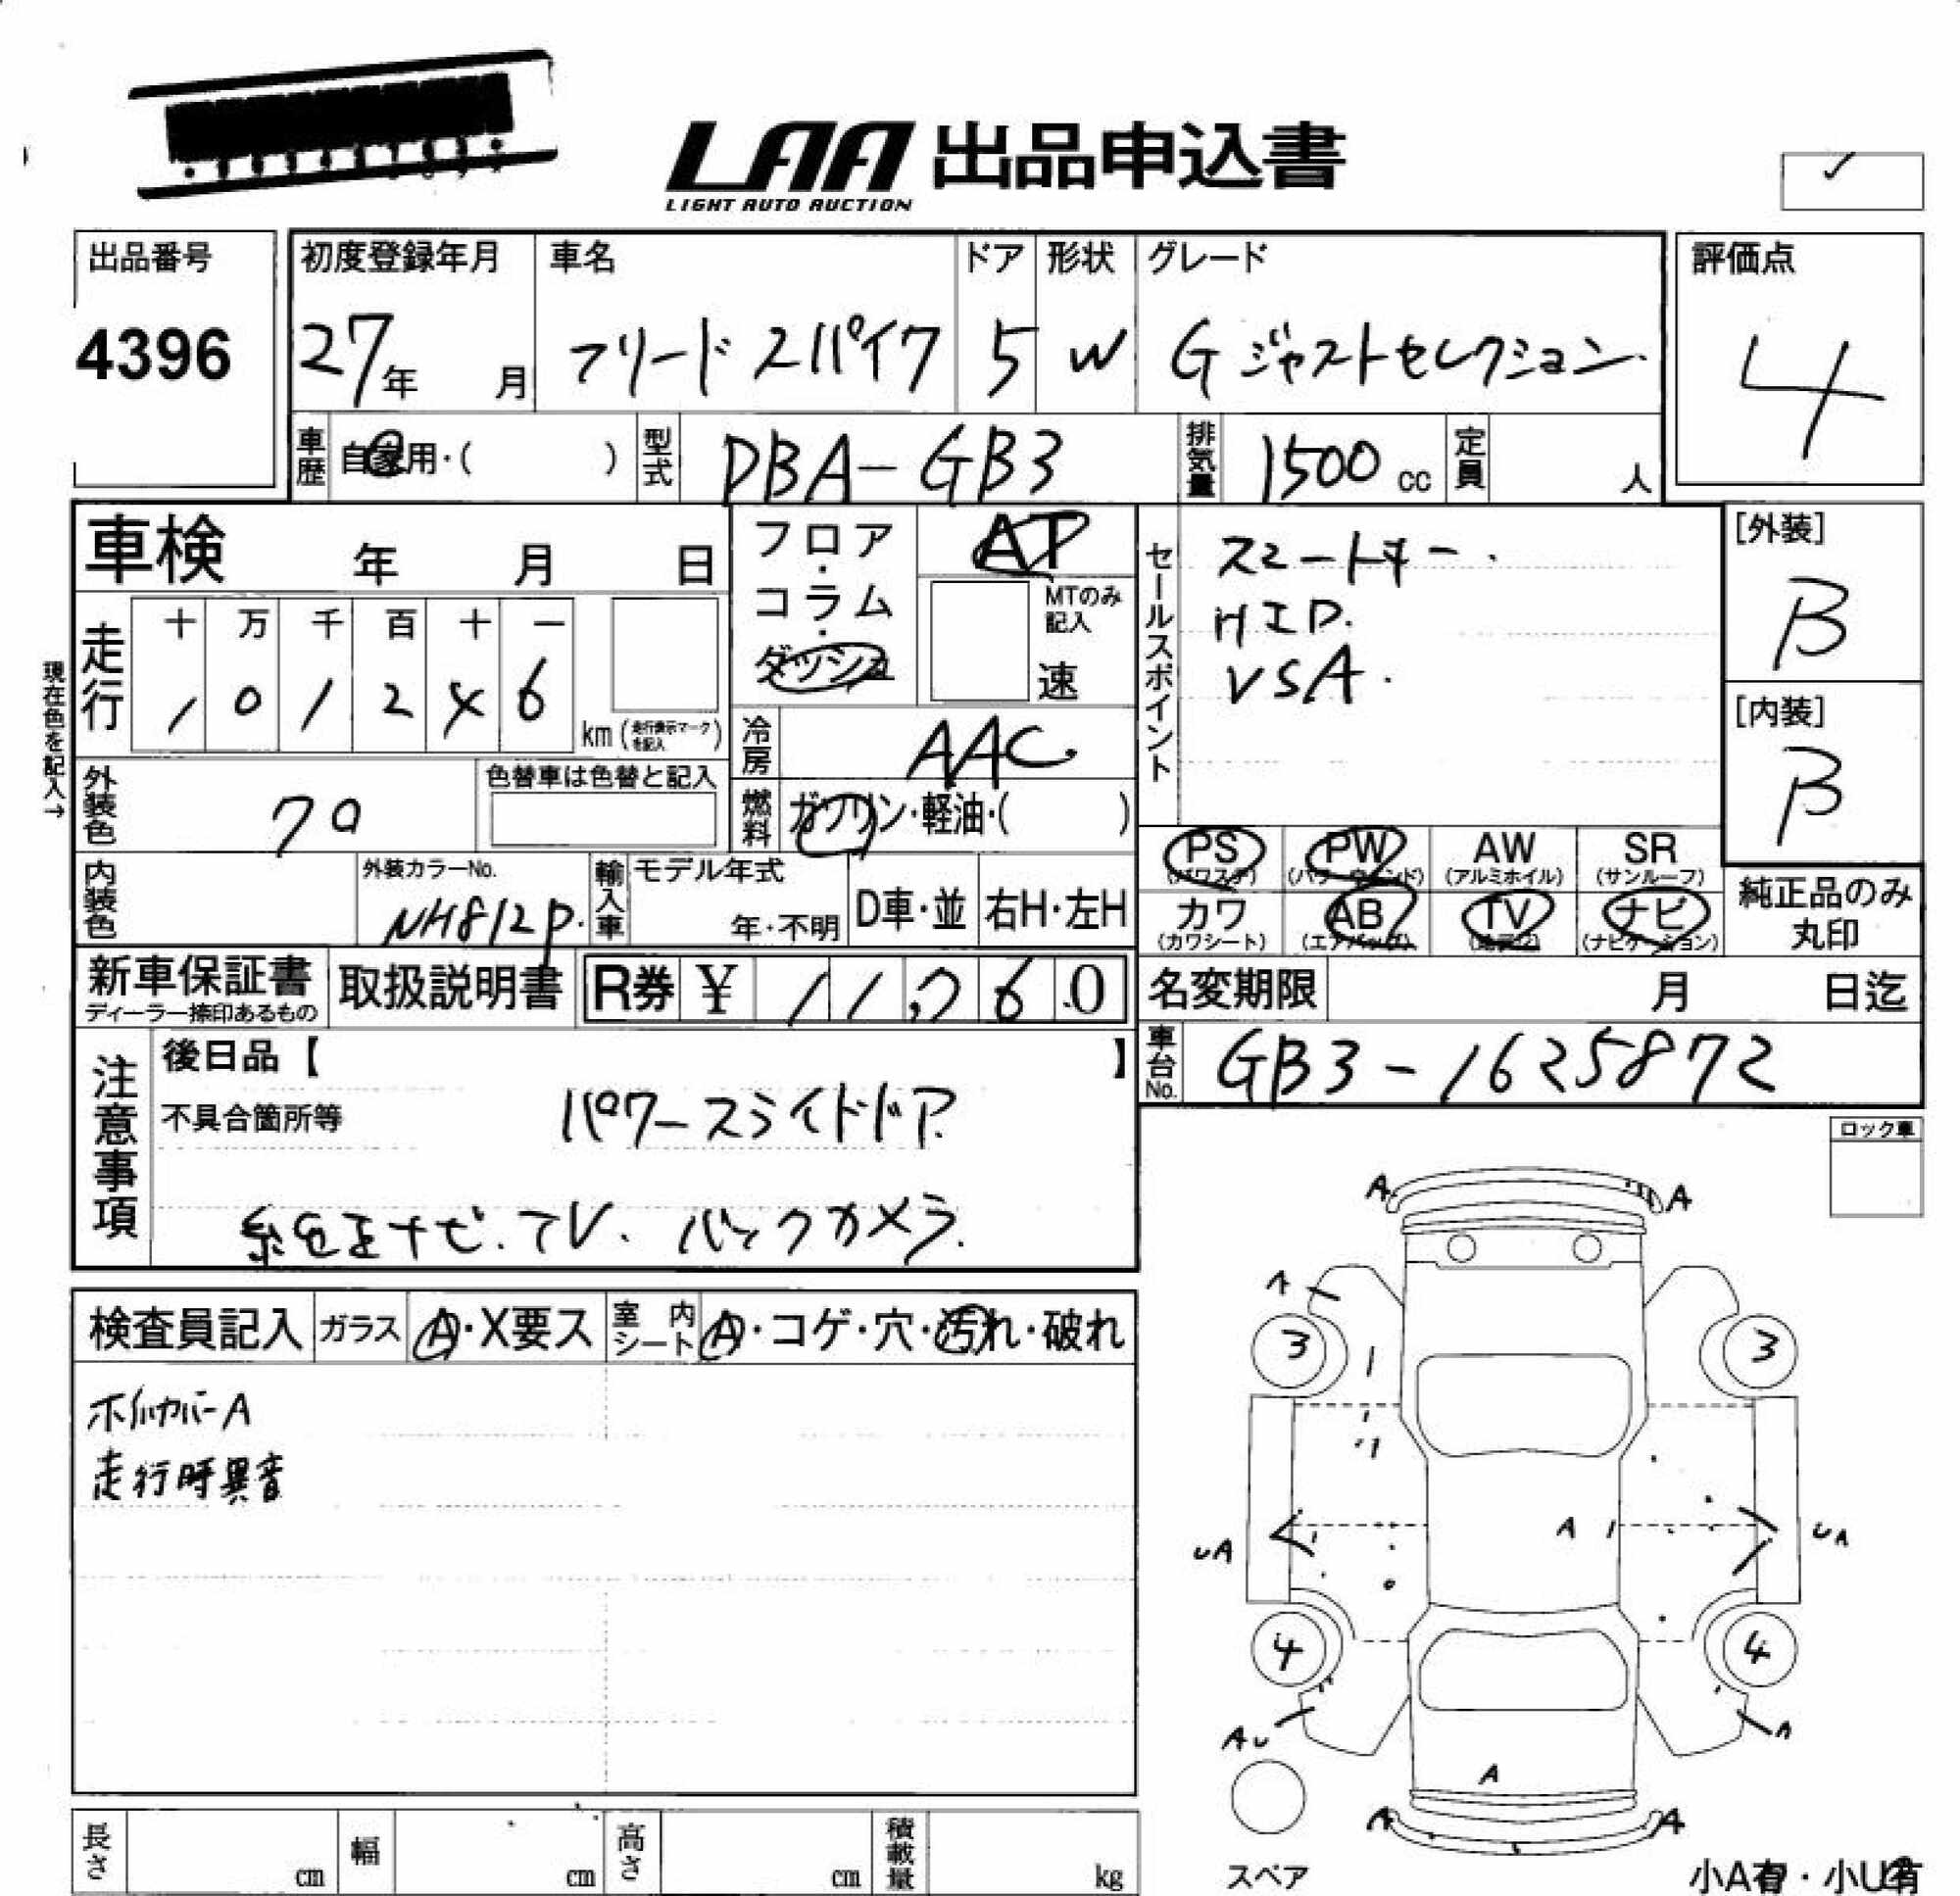 LAA 出品申込書
LIGHT AUTO AUCTION
出品番号
4396
初度登録年月
27年 月
車名
フリード スパイク
ドア
5
形状
W
グレード
G ジャストセレクション
評価点
4
車歴 自家用・( )
型式 DBA-GB3
排気量 1500 cc
定員 人
車検 年 月 日
フロア・コラム・ダッシュ
AT
MTのみ記入
速
セールスポイント
スマートキー.
HID.
VSA.
[外装]
B
[内装]
B
現在色を記入→
走行 十 万 千 百 十 一
1 0 1 2 4 6
km (走行表示マークを記入)
冷房 AAC
外装色
色替車は色替と記入
燃料 ガソリン・軽油・( )
内装色
外装カラーNo.
NH812P.
輸入車
モデル年式
年・不明
D車・並
右H・左H
PS (パワステ)
PW (パワーウィンド)
AW (アルミホイル)
SR (サンルーフ)
カワ (カワシート)
AB (エアバッグ)
TV
ナビ (ナビゲーション)
純正品のみ丸印
新車保証書
ディーラー捺印あるもの
取扱説明書
R券 ¥ 11,260
名変期限 月 日迄
車台No. GB3-1625872
注意事項
後日品【 】
不具合箇所等
パワースライドドア
純正ナビ. TV. バックカメラ.
ロック車
検査員記入
ガラス A・X要ス
室内シート A・コゲ・穴・汚れ・破れ
ホイルカバーA
走行時異音
A A
A
3 3
A
UA UA
4 4
AU A
A
A A
スペア
長さ cm
幅 cm
高さ cm
積載量 kg
小A有・小U有